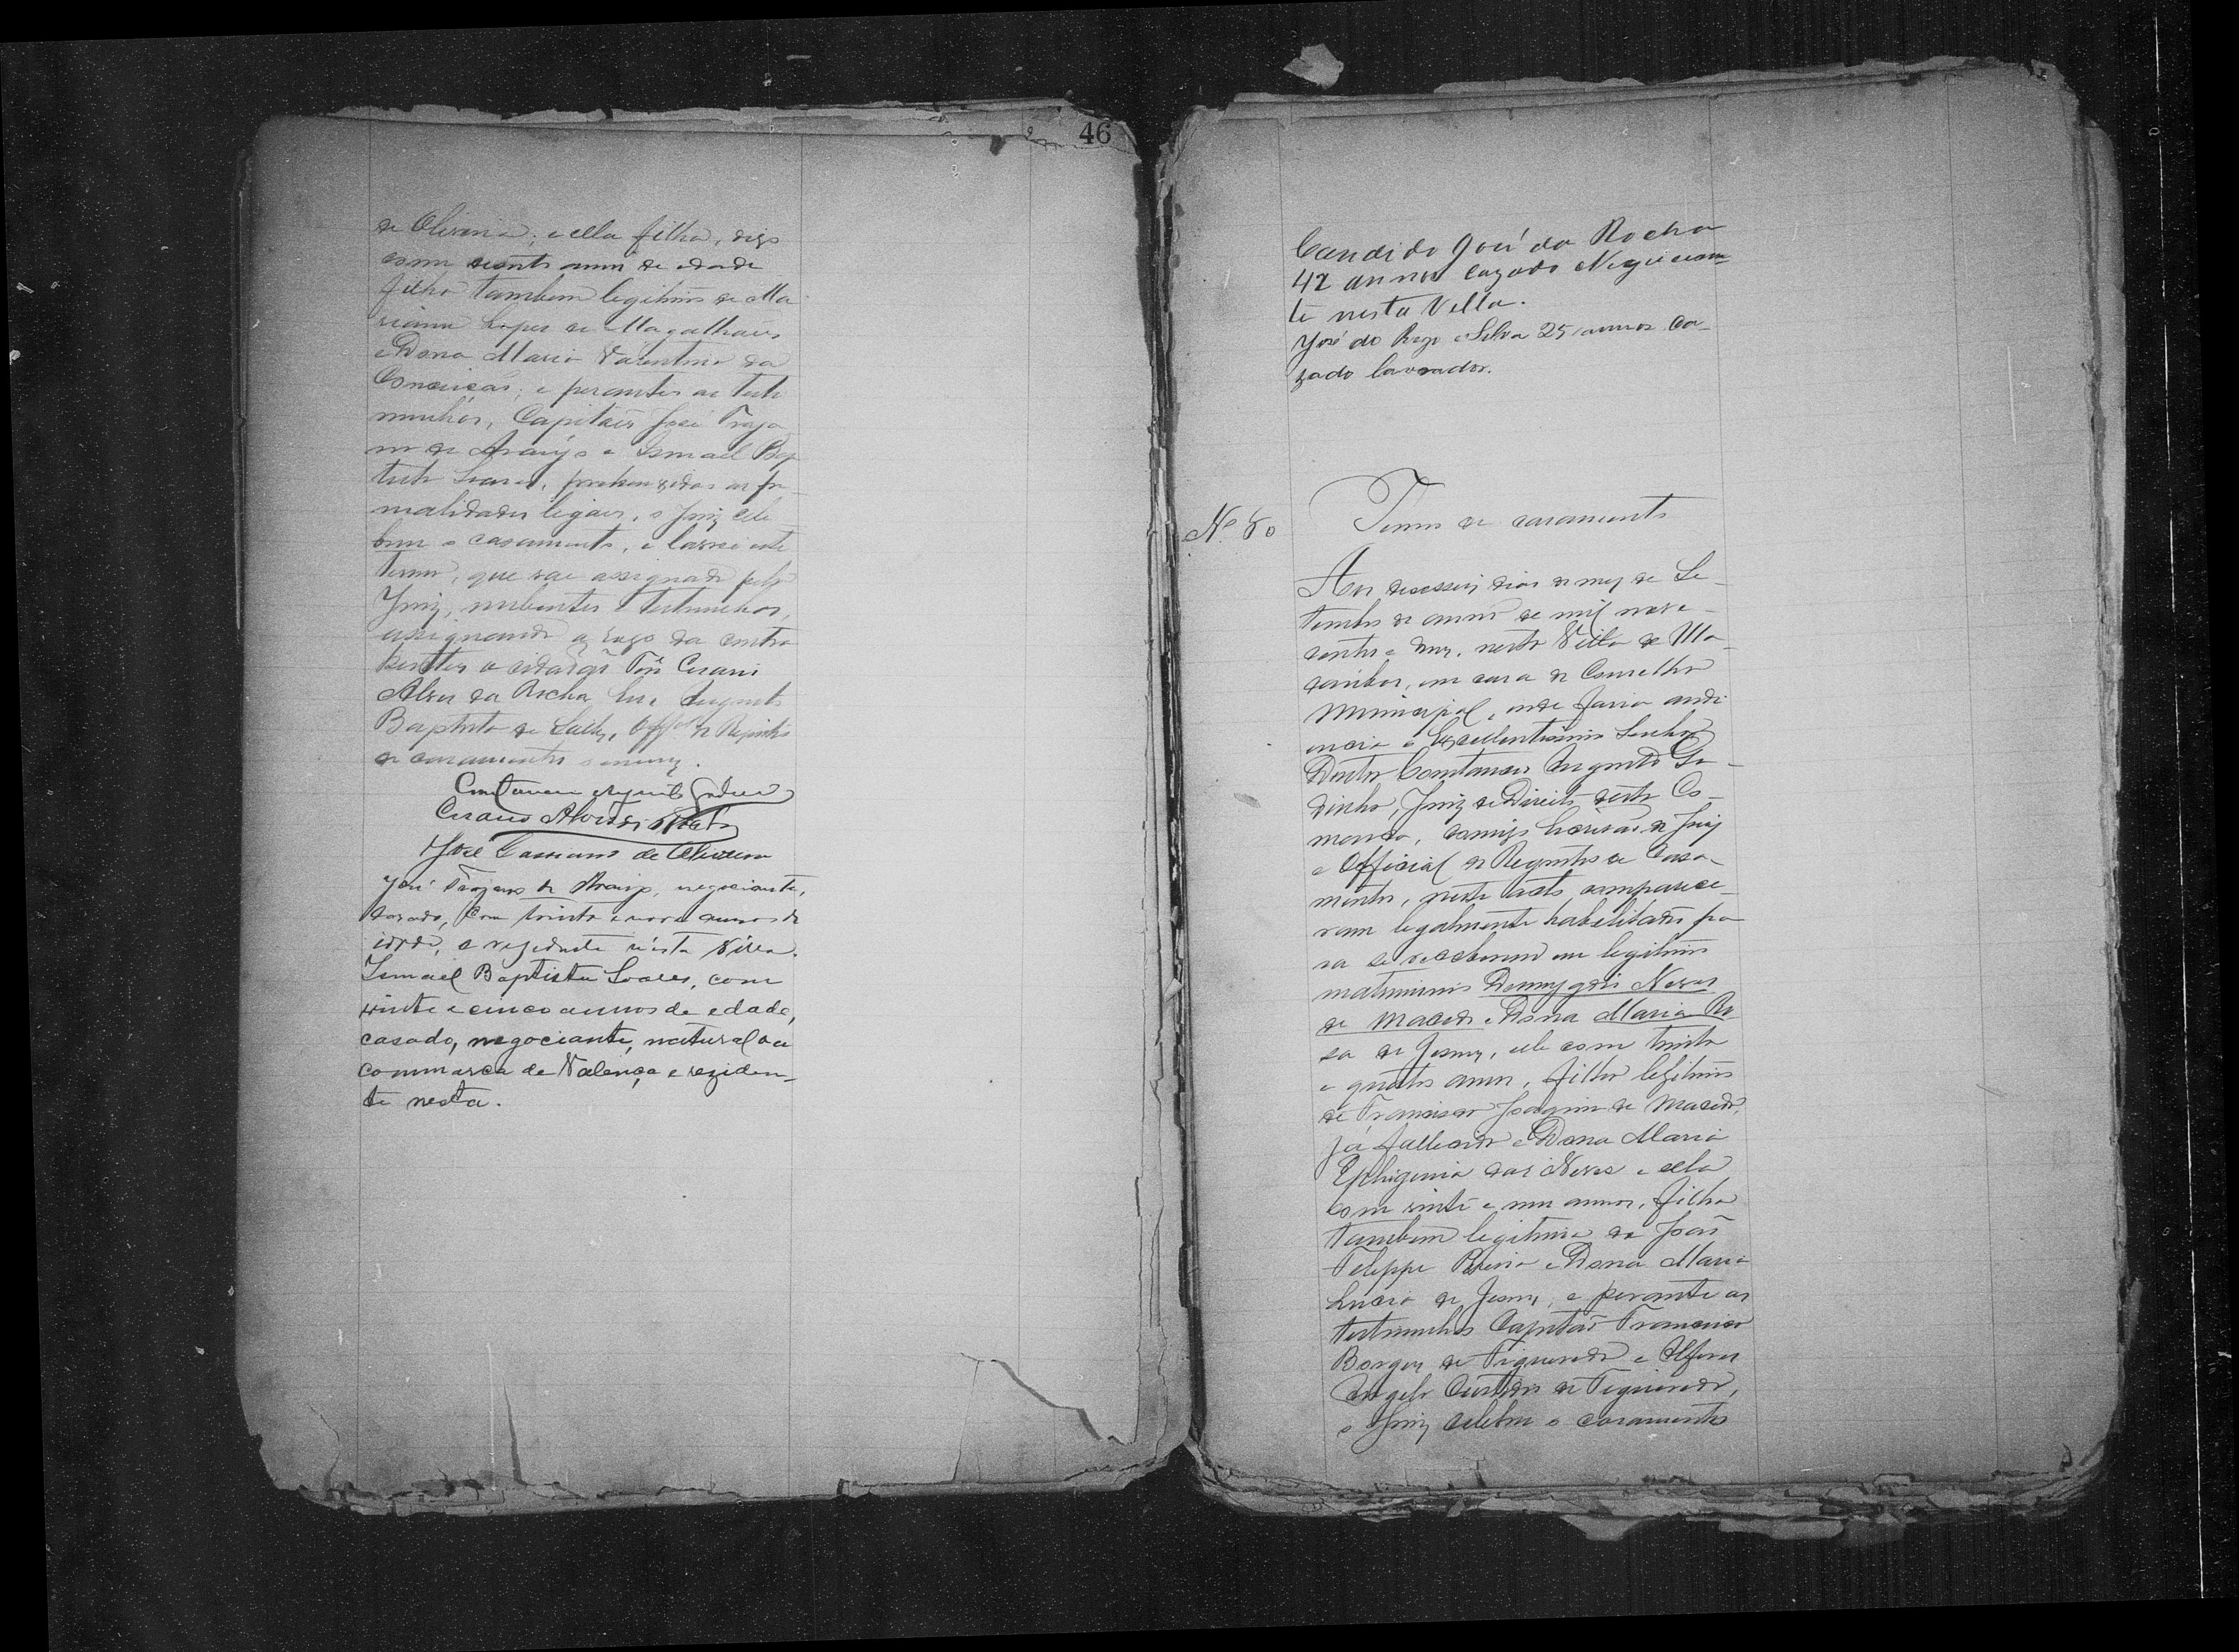 46
de Oliveira; e ella filha, digo
com vinte annos de edade
filha tambem legitima de Ma
riano Lopes de Magalhães
e Dona Maria Valentina da
Conceição; e perantes as teste
munhas, Capitão José Traja
no de Araujo e Ismael Bap
tista Soares, as for
malidades legaes, o Juiz cele
brou o casamento, e lavrei este
termo, que vae assignado pelo
Juiz, nubentes e testemunhas,
assignando a rogo da contra
hentes o cidadão Cerano
Alves da Rocha. Eu, Augusto
Baptista de, Offal do Registro
de casamentos o escrevy.
Constancio Augusto Godinho
Cerano Alves da Rocha
José Cassiano de Oliveira
José Trajano de Araujo, negociante,
casado, com trinta e nove annos de
idade, e rezidente n'esta Villa.
Ismael Baptista Soares, com
vinte e cinco annos de edade,
casado, negociante, natural da
commarca de Valença e reziden-
te nesta.
Candido José da Rocha
42 annos cazado Negociam
te nesta Villa.
José do Rego e Silva 25 annos ca-
zado lavrador.
Nº 80
Termo de casamento
Aos desesseis dias do mez de Se-
tembro do anno de mil nove-
centos e dez, nesta Villa de Ma-
, em casa do Conselho
Municipal, onde fazia audi
encia o Excellentissimo Senhor
Doutor Constancio Augusto Go-
dinho, Juiz de Direito desta Co-
marca, comigo Escrivão de Juiz
e Official do Registro de Casa-
mentos, neste acto comparece-
ram legalmente habilitados pa-
ra se receberem em legitimo
matrimonio Demygdio Neves
de Macedo e Dona Maria Ro
sa de Jesus, elle com trinta
e quatro annos, filho legitimo
de Francisco Joaquim de Macedo,
já fallecido e Dona Maria
Ephigenia das Neves e ella
com vinte e um annos, filha
tambem legitima de João
Felippe e Dona Maria
Lucia de Jesus, e perante as
testemunhas Capitão Francisco
Borges de Figueredo e Alferes
Angelo Custodio de Figueredo,
o Juiz celebrou o casamento